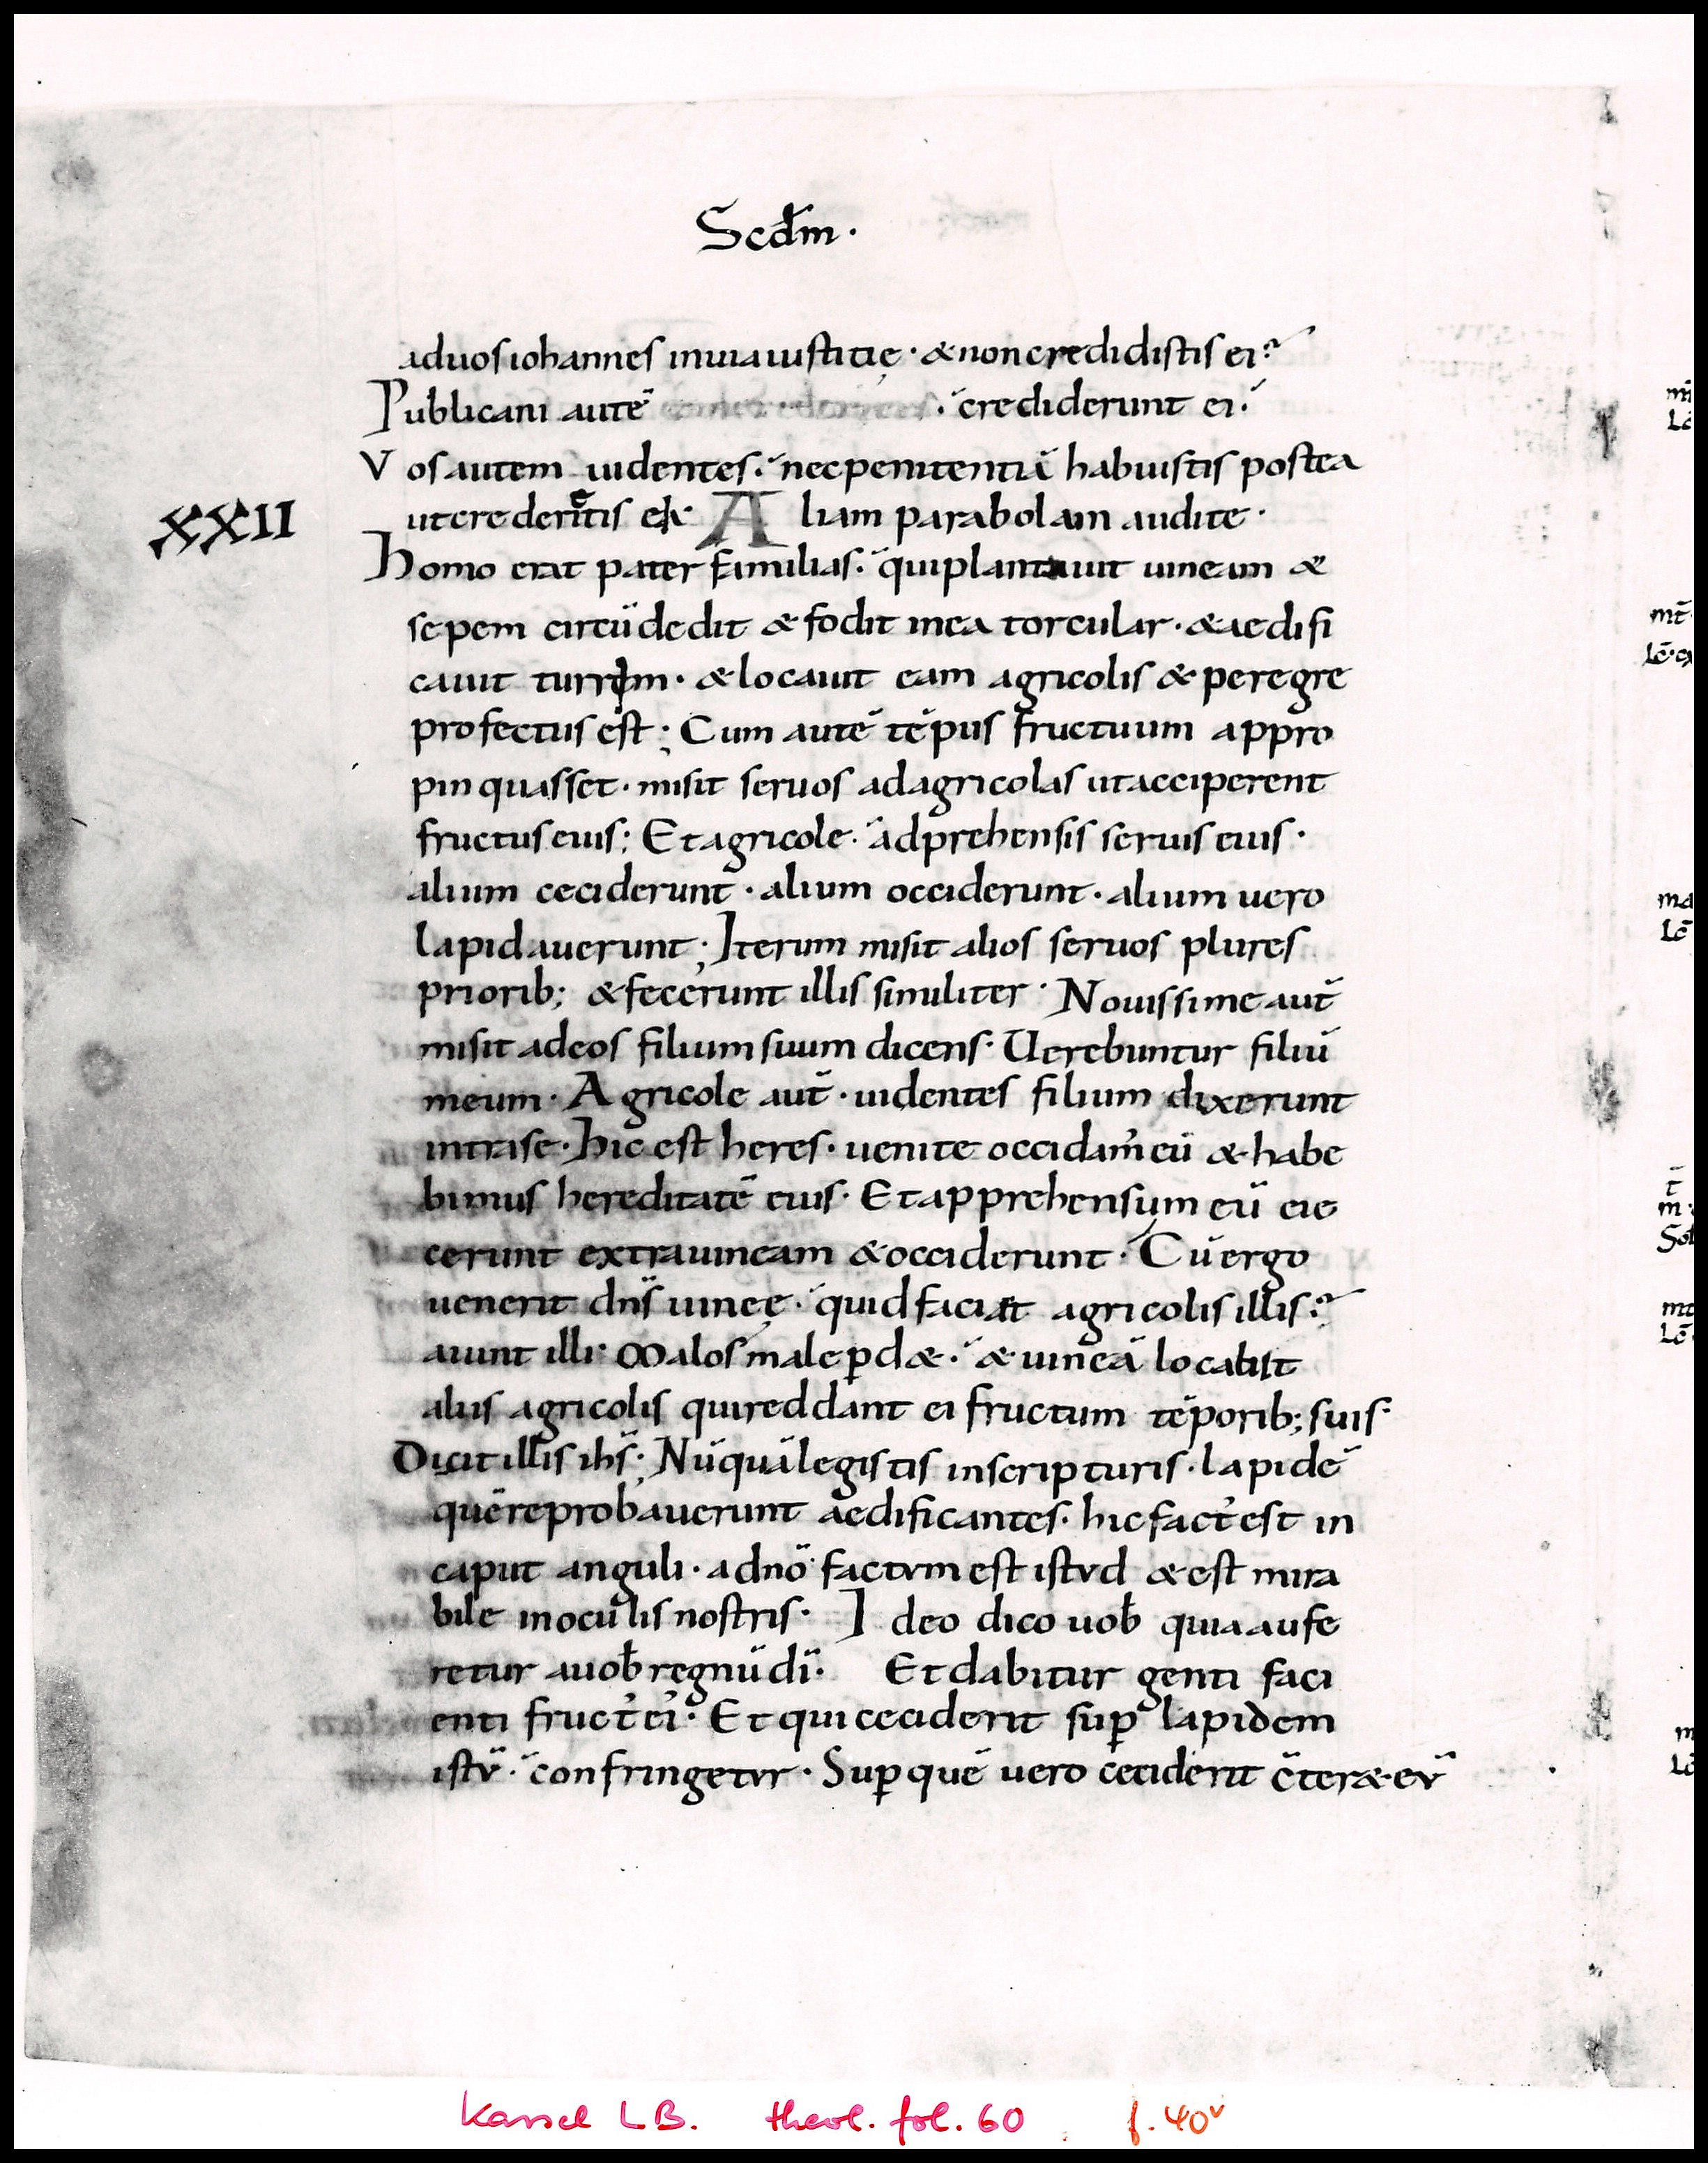 Scdm̄ ·
ad uos iohannes in uia iustitię · & non credidistis ei?
Publicani autē · crediderunt ei ·
Vos autem uidentes · nec penitentiā habuistis postea
XXII
ut crederetis ei · Aliam parabolam audite ·
Homo erat pater familias · qui plantauit uineam &
sepem circūdedit & fodit in ea torcular · & aedifi
cauit turrim · & locauit eam agricolis & peregre
profectus est ; Cum autē tēpus fructuum appro
pinquasset · misit seruos ad agricolas ut acciperent
fructus eius ; Et agricole · adprehensis seruis eius ·
alium ceciderunt · alium occiderunt · alium uero
lapidauerunt ; Iterum misit alios seruos plures
priorib; & fecerunt illis similiter · Nouissime aut̄
misit ad eos filium suum dicens · Uerebuntur filiū
meum · Agricole aut̄ · uidentes filium dixerunt
intra se · hic est heres · uenite occidam' eū & habe
bimus hereditatē eius · Et apprehensum eū eie
cerunt extra uineam & occiderunt · Cū ergo
uenerit dn̄s uineę · quid faciet agricolis illis?
aiunt illi · Malos male ꝑd& · & uineā locabit
aliis agricolis qui reddant ei fructum tēporib; suis ·
Dicit illis ih̄s ; Nūquā legistis in scripturis · lapidē
quē reprobauerunt aedificantes · hic fact' est in
caput anguli · a dn̄o factum est istud & est mira
bile in oculis nostris · Ideo dico uob̄ quia aufe
retur a uob̄ regnū dī · Et dabitur genti faci
enti fruct' ei' · Et qui ceciderit suꝑ lapidem
istū · confringetur · Suꝑ quē uero ceciderit c̄ter& eū
Kassel LB. theol. fol. 60 f. 40v